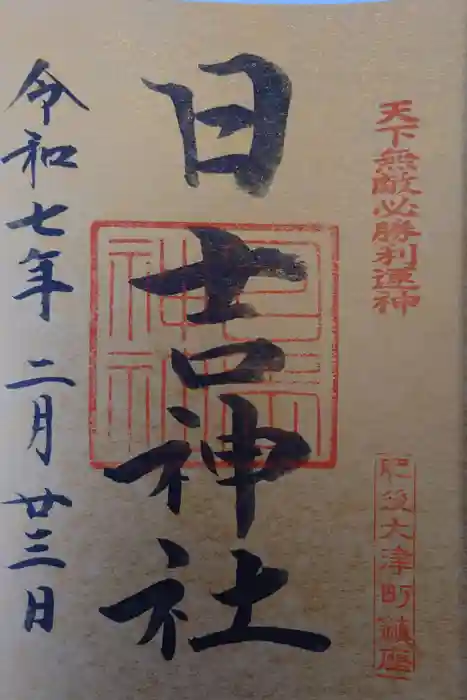 天下無敵必勝利運神
肥後大津町鎮座
日吉神社
日吉神社
令和七年二月廿三日